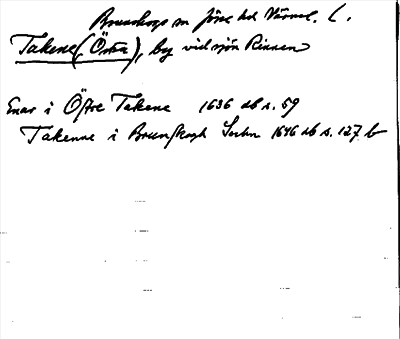 Brunskogs sn Jösse hd Värml. L.
Takene (Östra), by vid sjön Rinnen
Enar i Östre Takene 1636 db s. 59
Takenne i Brunskogh Sochn 1646 db s. 127 b